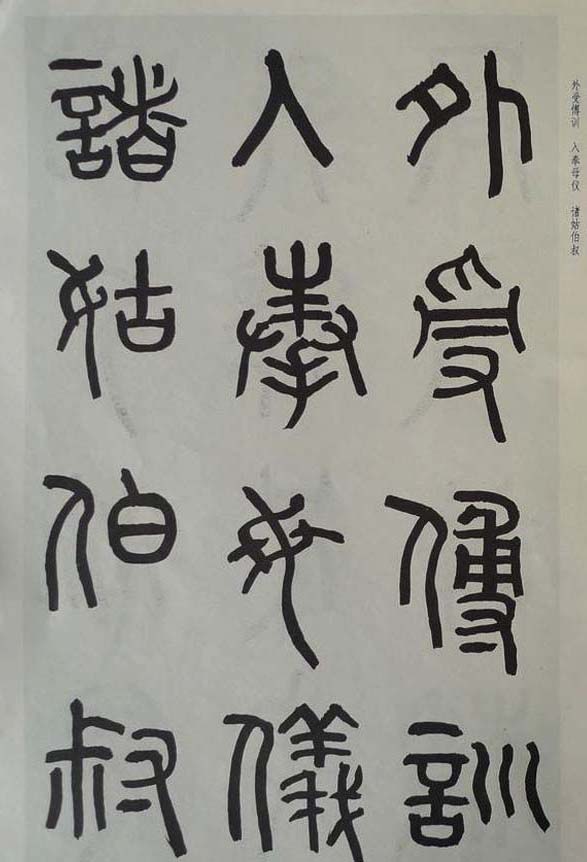 外受傅訓
入奉母儀
諸姑伯叔
外受傅训 入奉母仪 诸姑伯叔